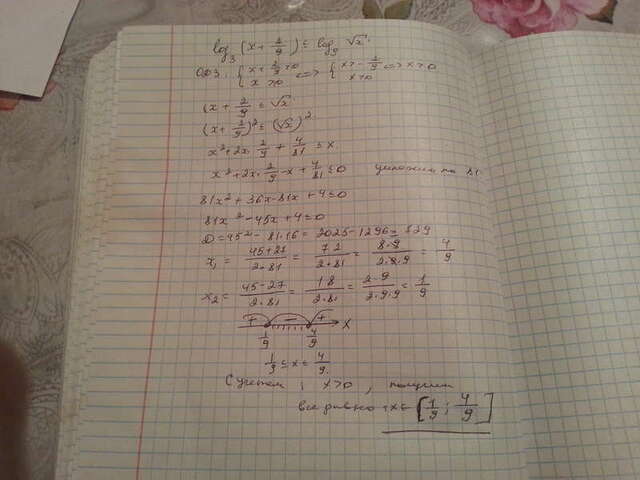 log₃ (x + 2/9) ≤ log₃ √x
ОДЗ: { x + 2/9 > 0 x > 0 <=> { x > - 2/9 x > 0 <=> x > 0
(x + 2/9 ≤ √x
(x + 2/9)² ≤ (√x)²
x² + 2x · 2/9 + 4/81 ≤ x
x² + 2x · 2/9 - x + 4/81 ≤ 0 умножим на 81
81x² + 36x - 81x + 4 ≤ 0
81x² - 45x + 4 ≤ 0
D = 45² - 81·16 = 2025 - 1296 = 729
x₁ = 45+27 / 2·81 = 72 / 2·81 = 8·9 / 2·9·9 = 4/9
x₂ = 45-27 / 2·81 = 18 / 2·81 = 2·9 / 2·9·9 = 1/9
+ - + x
1/9 4/9
1/9 ≤ x ≤ 4/9
С учетом , x > 0 , получим
все равно : x ∈ [1/9 ; 4/9]